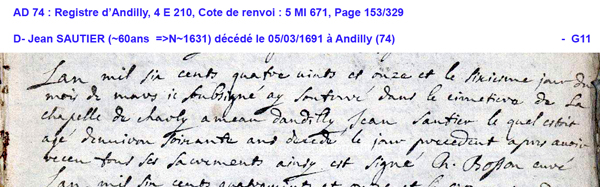 AD 74 : Registre d'Andilly, 4 E 210, Cote de renvoi : 5 MI 671, Page 153/329
D- Jean SAUTIER (~60ans =>N~1631) décédé le 05/03/1691 à Andilly (74) - G11
Lan mil six cents quatre vints et onze et le sixiesme jour du
mois de mars ie soubsigné ay Sonterré dans le cimetiere de La
chapelle de charly ameau dandilly Jean Sautier le quel estoit
agé denviron soixante ans decedé le jour precedent apres avoir
receu tous ses sacrements ainsy est signé R. Rosson curé
Lan mil six cents quatrevints et onze et le